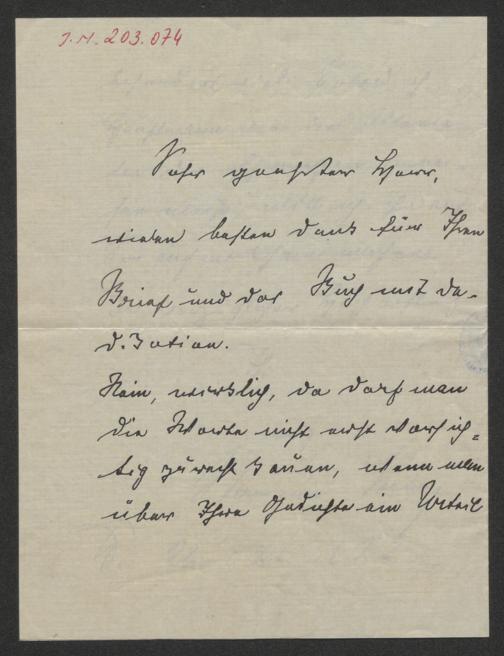 J.N. 203.074
Sehr geehrter Herr,
vielen besten Dank für Ihren
Brief und das Buch mit De-
dikation.
Nein, wirklich, da darf man
die Worte nicht erst vorsich=
tig zurecht kauen, wenn man
über Ihre Gedichte ein Urteil